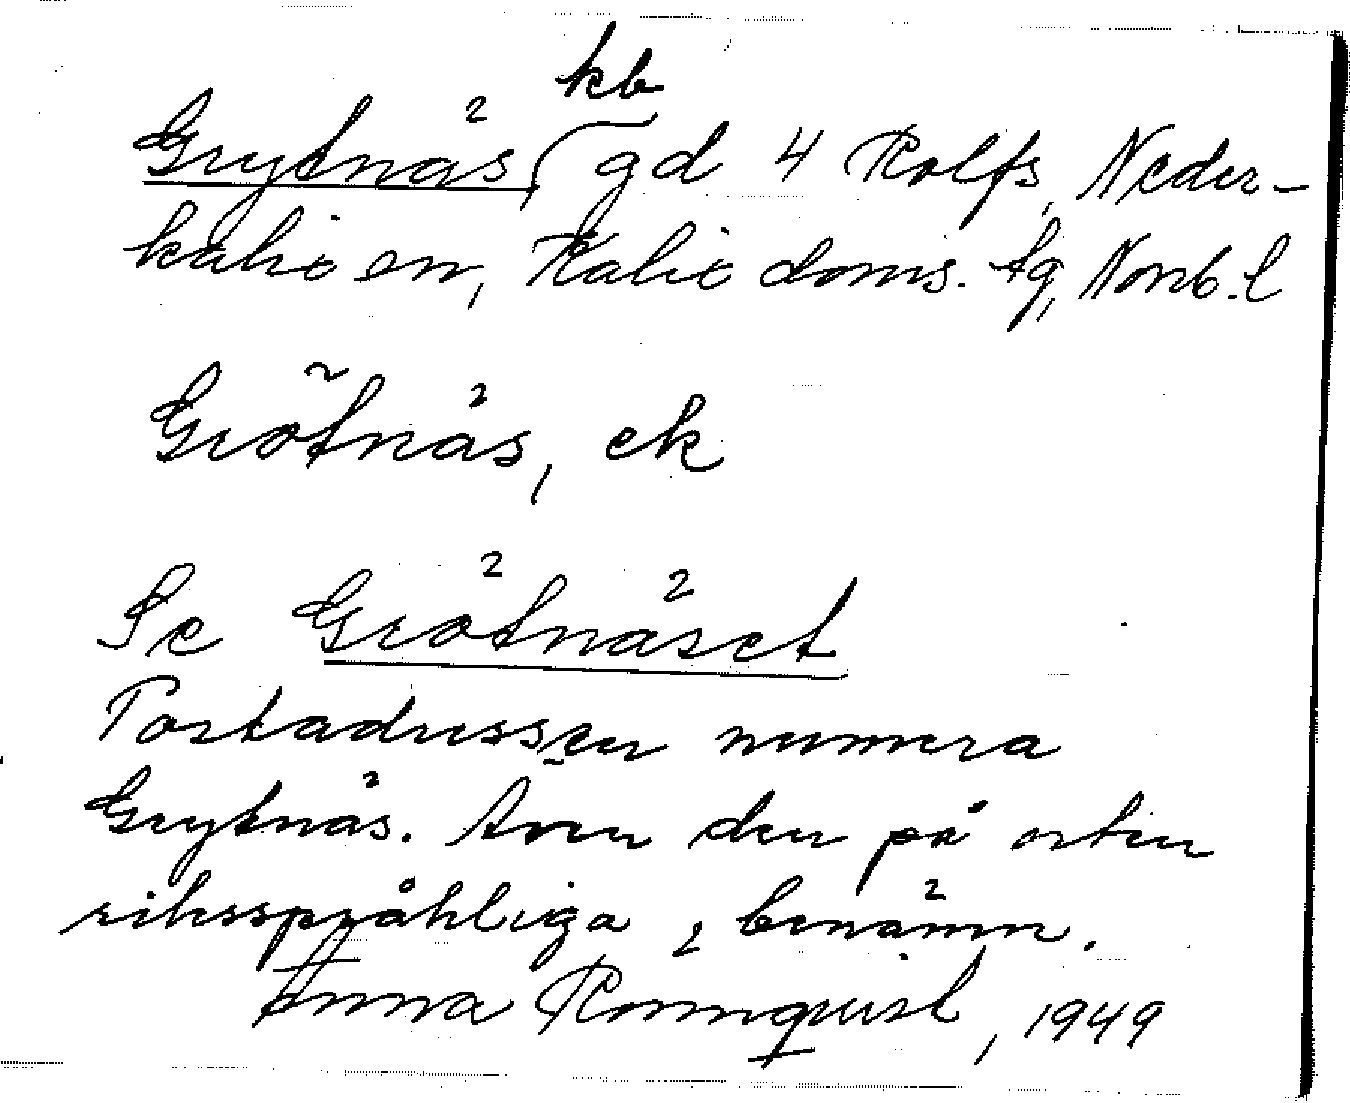 kb
Grytnäs, gd 4 Rolfs, Neder-
kalix sn, Kalix doms. tg, Norrb. l
Grötnäs, ek
Se Grötnäset
Postadressen numera
Grytnäs. Även den på orten
riksspråkliga benämn.
Anna Ronnquist, 1949